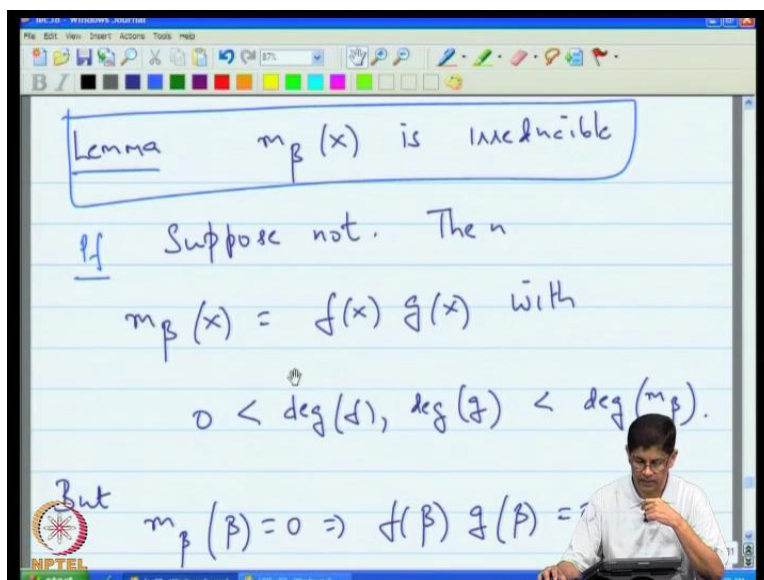 File Edit View Insert Actions Tools Help
87%
B I
Lemma m_β (x) is irreducible
Pf Suppose not. Then
m_β (x) = f(x) g(x) with
0 < deg(f), deg(g) < deg(m_β).
But m_β (β) = 0 => f(β) g(β) =
NPTEL